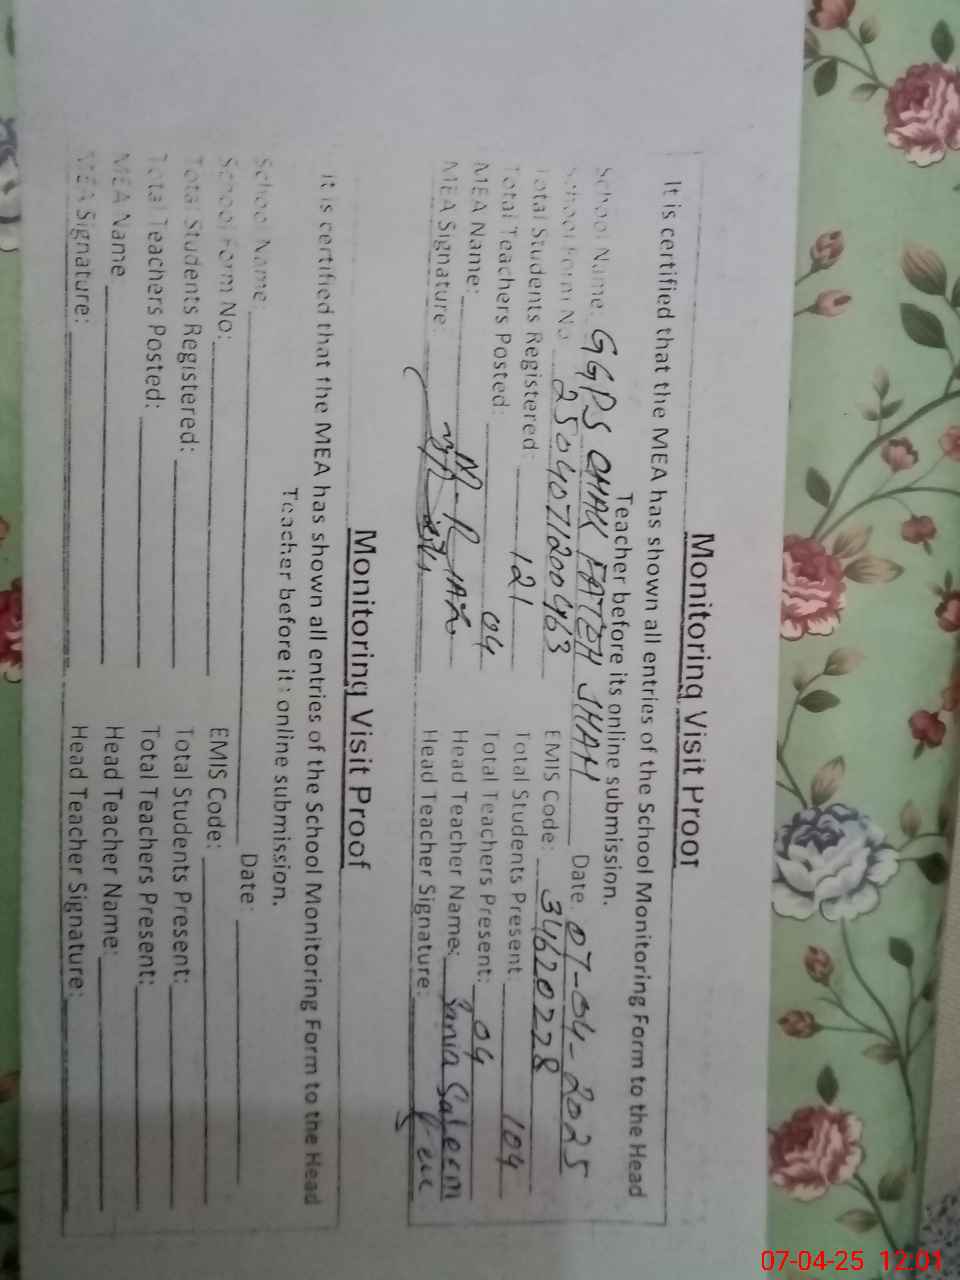 Monitoring Visit Proof
It is certified that the MEA has shown all entries of the School Monitoring Form to the Head
Teacher before its online submission.
School Name: GGPS CHAK FATEH SHAH Date: 07-04-2025
School Form No. 2504071200463 EMIS Code: 34620228
Total Students Registered: 121 Total Students Present: 104
Total Teachers Posted: 04 Total Teachers Present: 04
MEA Name: Head Teacher Name: Sania Saleem
MEA Signature: Head Teacher Signature:
Monitoring Visit Proof
It is certified that the MEA has shown all entries of the School Monitoring Form to the Head
Teacher before its online submission.
School Name: Date:
School Form No: EMIS Code:
Total Students Registered: Total Students Present:
Total Teachers Posted: Total Teachers Present:
MEA Name Head Teacher Name:
MEA Signature: Head Teacher Signature:
07-04-25 12:01